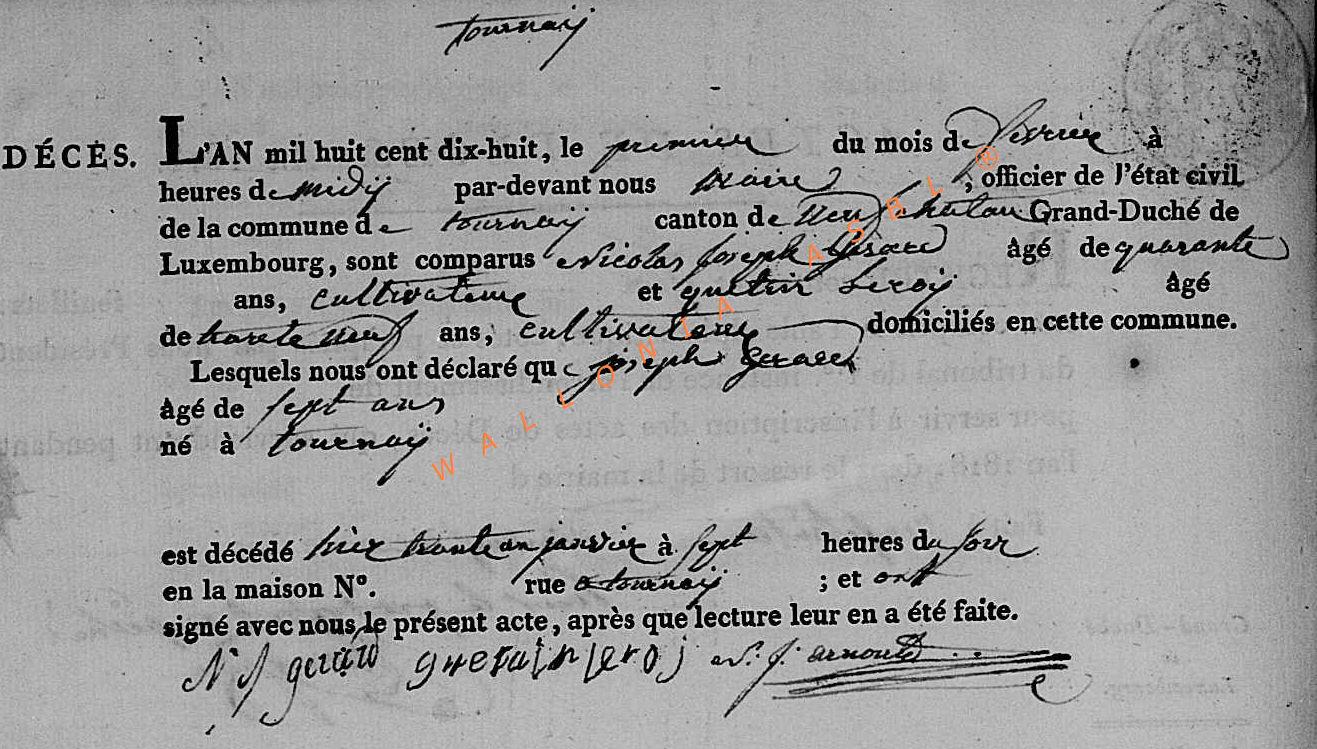 tournaÿ
DÉCÈS. L'AN mil huit cent dix-huit, le premier du mois de février à
heures de midÿ par-devant nous maire, officier de l'état civil
de la commune de tournaÿ canton de neufchatau Grand-Duché de
Luxembourg, sont comparus Nicolas joseph gerard âgé de quarante
ans, cultivateur et guerin Leroÿ âgé
de trante neuf ans, cultivateur domiciliés en cette commune.
Lesquels nous ont déclaré que joseph gerard
âgé de sept ans
né à tournaÿ
est décédé hier trante un janvier à sept heures du soir
en la maison N°. rue a tournaÿ ; et ont
signé avec nous le présent acte, après que lecture leur en a été faite.
N J gerard guerain leroj N. j. arnould
WALLONIA ASBL ®